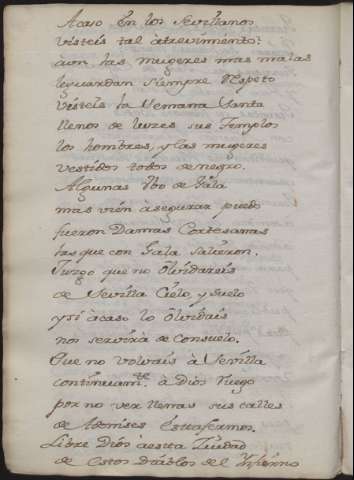 Acaso En los Sevillanos
visteis tal àtrevimiento:
àun, las mugeres mas malas
le guardan siempre Respeto
visteis la Semana Santa
llenos de luzes sus Templos
los hombres, y las mugeres
vestidos todos de negro.
Algunas Ubo de Gala
mas vien àsegurar puedo
fueron Damas Cortesanas
las que con Gala salieron.
Juzgo que no Olvidareis
de Sevilla Cielo, y suelo
y si àcaso lo Olvidais
nos servirà de Consuelo.
Que no volvais à Sevilla
continuamte. à Dios Ruego
por no ver llenas sus calles
de
Libre Dios àesta Ciudad
de estos Diablos del Infierno